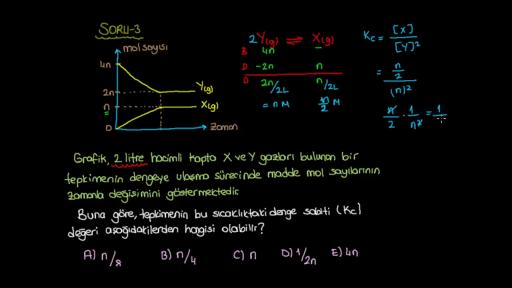 SORU-3
mol sayısı
4n
2n
n
0
Y(g)
X(g)
Zaman
2Y(g) ⇌ X(g)
B 4n -
D -2n n
D 2n/2L n/2L
= n M n/2 M
Kc = [X] / [Y]²
= n/2 / (n)²
n/2 . 1/n² = 1/
Grafik, 2 litre hacimli kapta X ve Y gazları bulunan bir
tepkimenin dengeye ulaşma sürecinde madde mol sayılarının
zamanla değişimini göstermektedir.
Buna göre, tepkimenin bu sıcaklıktaki denge sabiti (Kc)
değeri aşağıdakilerden hangisi olabilir?
A) n/2 B) n/4 C) n D) 1/2n E) 4n